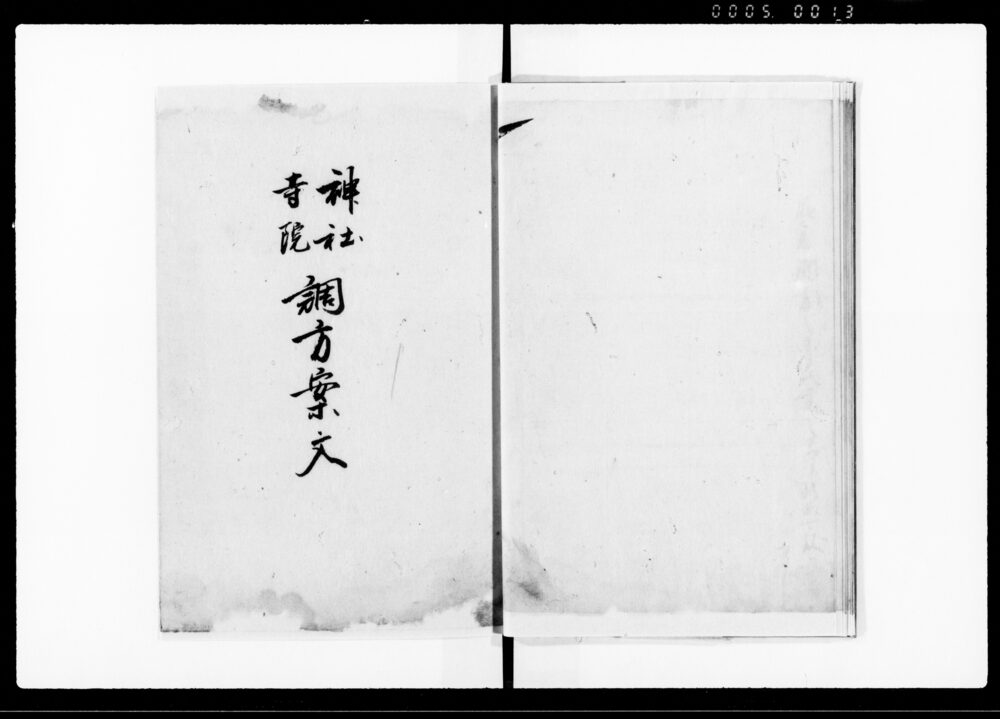 0005 0013
神社
寺院
調方案文